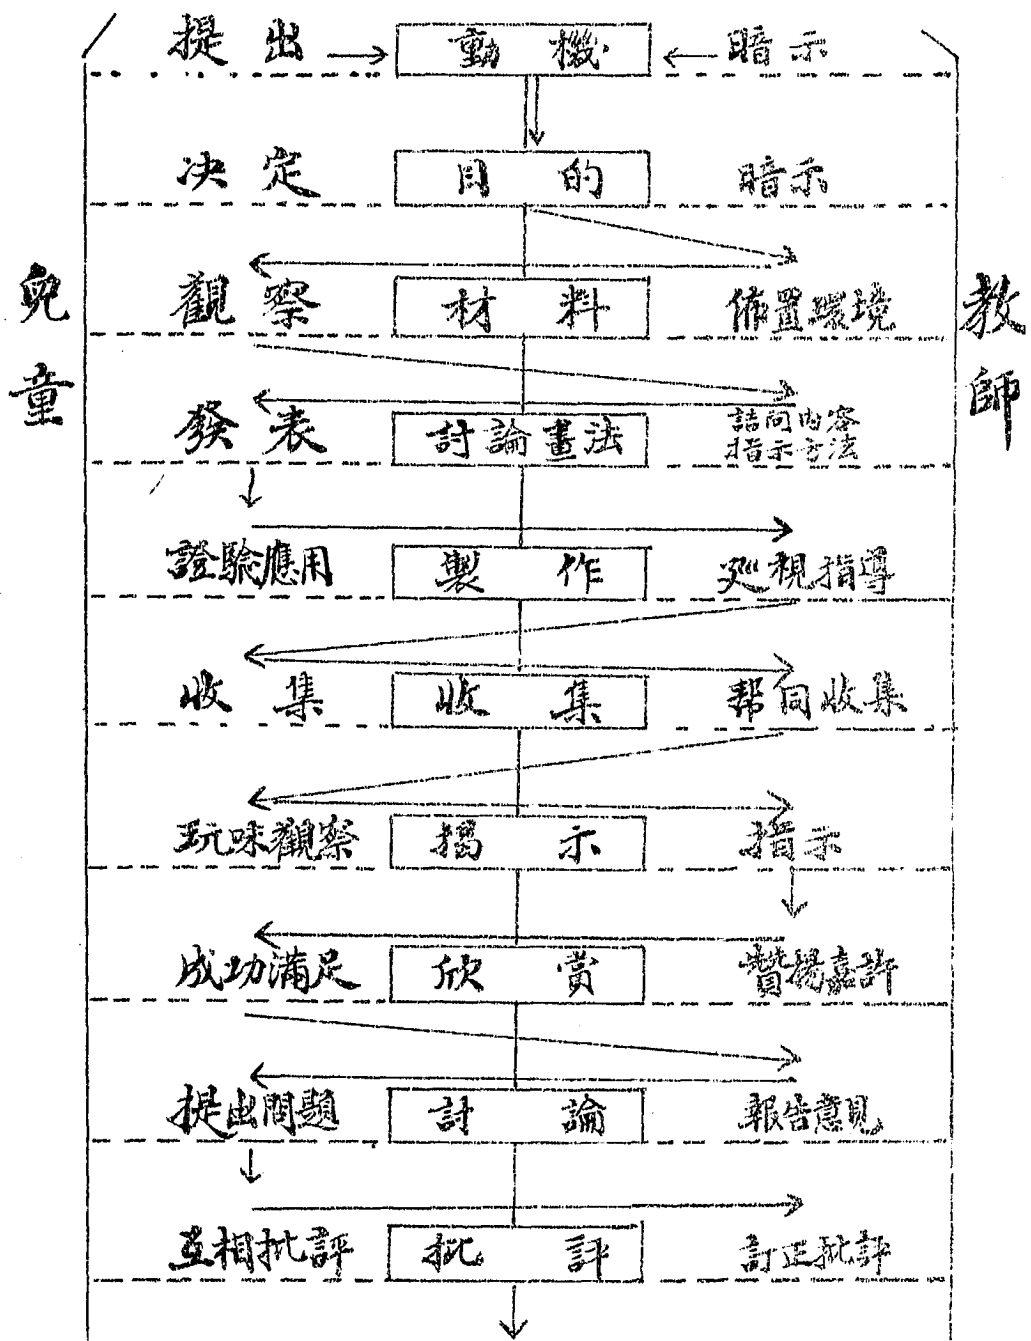 提出 動機 暗示
决定 目的 暗示
兒童
教師
觀察 材料 佈置環境
發表 討論畫法 詰問內容
指示方法
證驗應用 製作 巡視指導
收集 收集 帮同收集
玩味觀察 揭示 指示
成功滿足 欣賞 贊揚嘉許
提出問題 討論 報告意見
互相批評 批評 訂正批評